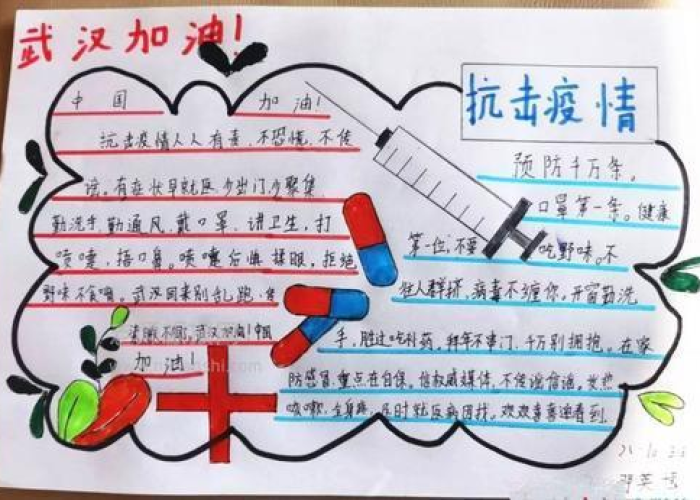 武汉加油!
抗击疫情
中国 加油!
抗击疫情人人有责,不恐慌,不传
谣。有症状早就医,少出门少聚集
勤洗手,勤通风,戴口罩,讲卫生,打
喷嚏,捂口鼻。喷嚏后俱揉眼,拒绝
野味不食用。武汉回来别乱跑,
武汉加油!中国
加油!
预防千万条。
口罩第一条。健康
第一位,不要吃野味。不
往人群挤,病毒不缠你。开窗勤洗
手,胜过吃补药,拜年不串门,千万别拥抱。在家
防感冒,重点在自保。信权威媒体,不传谣信谣。发热
咳嗽,全身疼,及时就医病因找。欢欢喜喜迎看到.